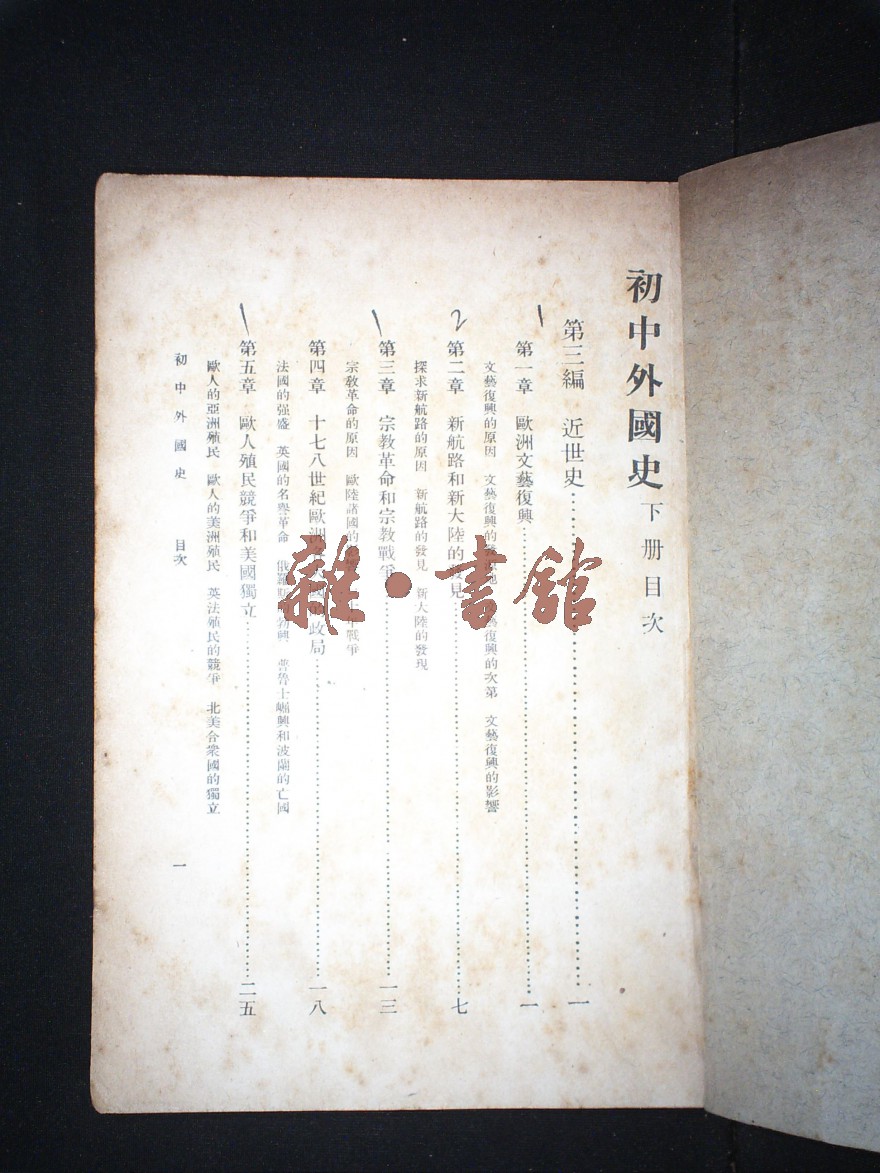 初中外國史 下册目次
第三編 近世史……一
1
第一章 歐洲文藝復興……一
文藝復興的原因 文藝復興的 藝復興的次第 文藝復興的影響
2
第二章 新航路和新大陸的發見……七
探求新航路的原因 新航路的發見 新大陸的發現
1
第三章 宗教革命和宗教戰爭……一三
宗教革命的原因 歐陸諸國的 戰爭
第四章 十七八世紀歐洲 政局……一八
法國的强盛 英國的名譽革命 俄羅斯 勃興 普魯士崛興和波蘭的亡國
1
第五章 歐人殖民競爭和美國獨立……二五
歐人的亞洲殖民 歐人的美洲殖民 英法殖民的競爭 北美合衆國的獨立
初中外國史 目次 一
雜·書館